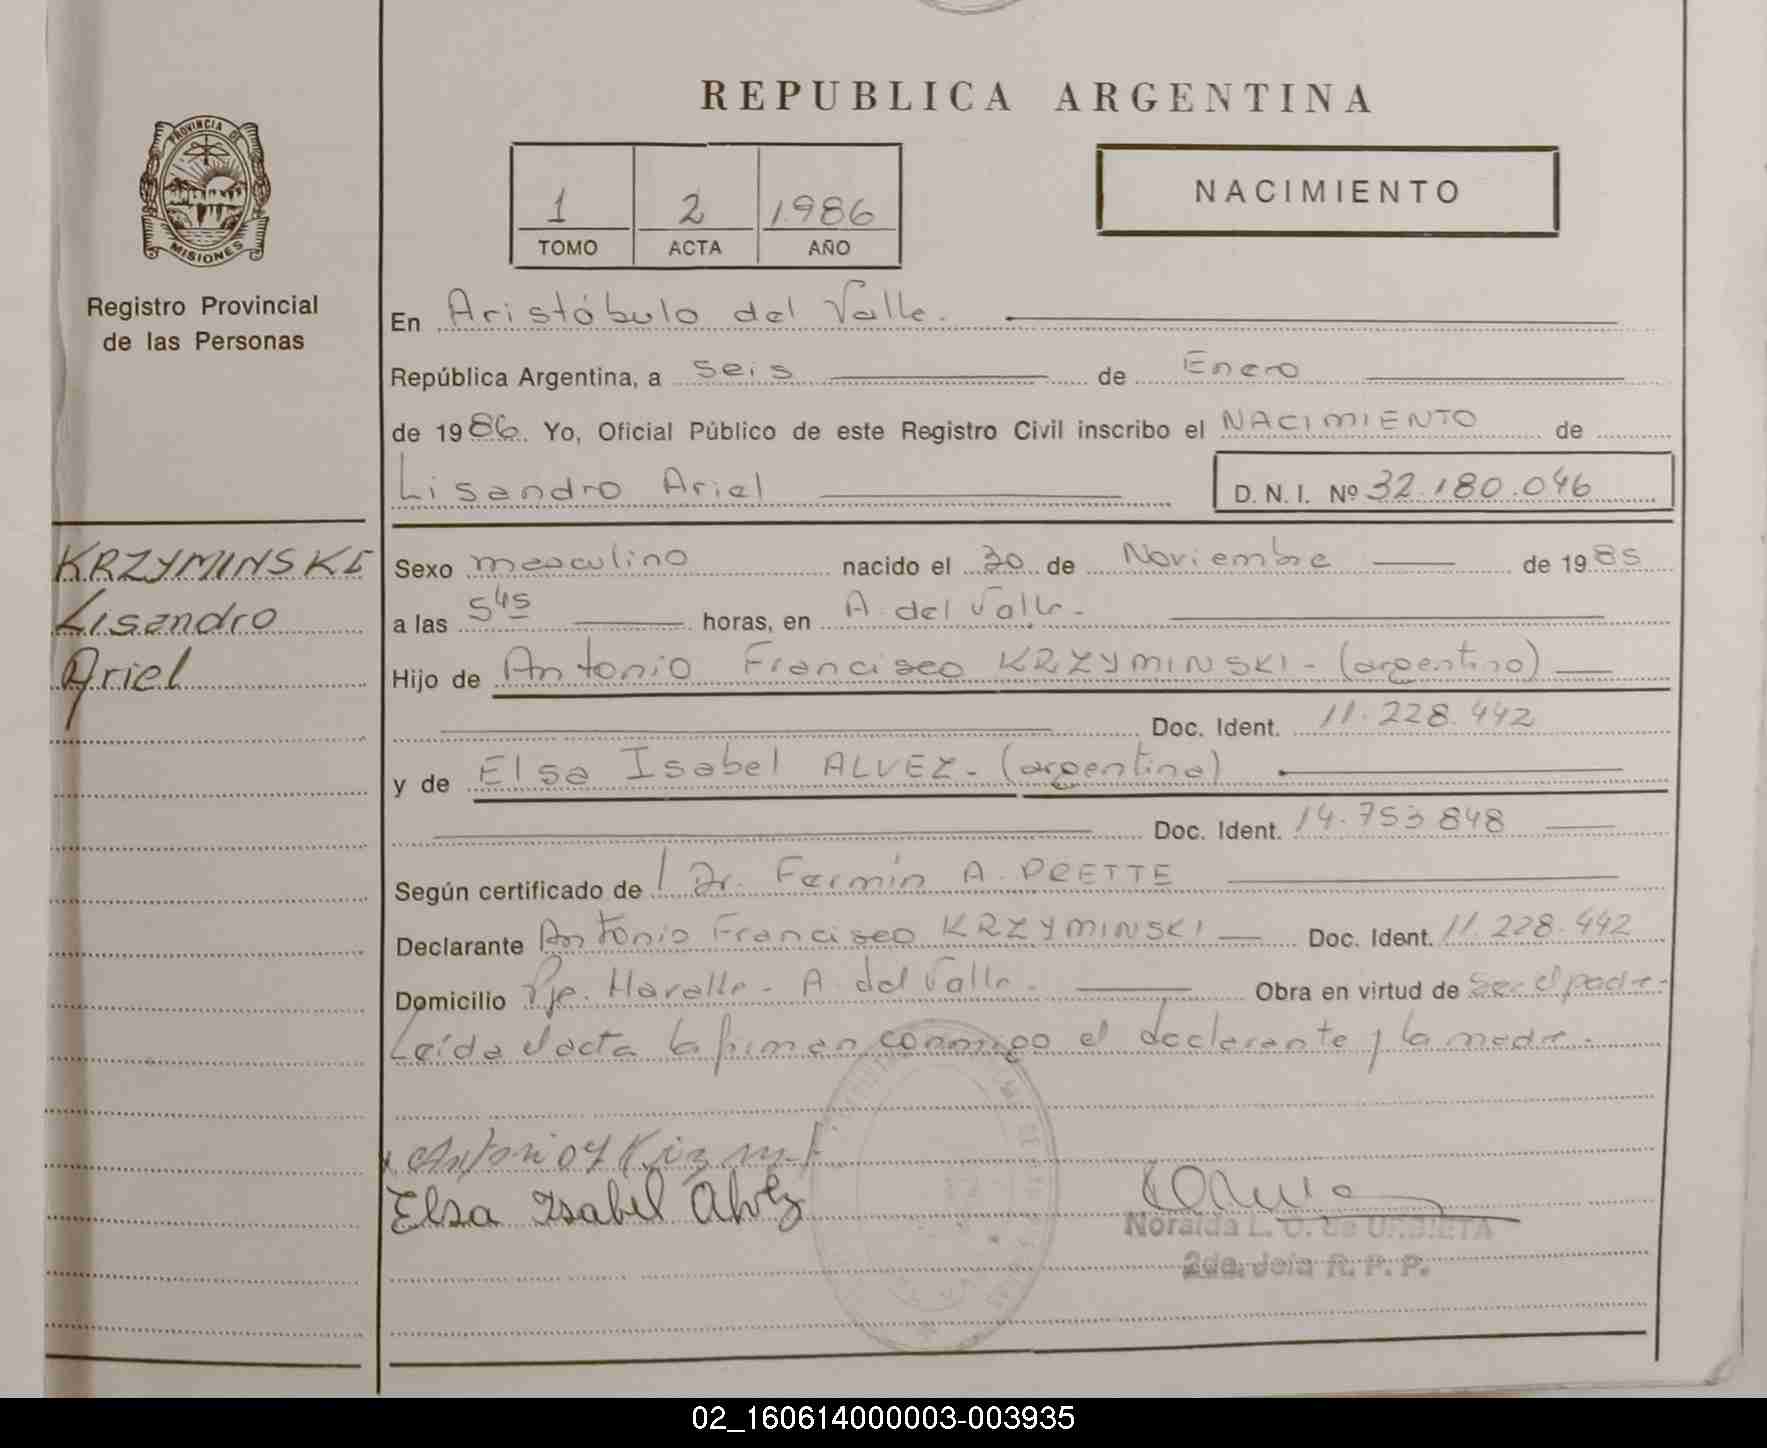 REPUBLICA ARGENTINA
PROVINCIA DE
MISIONES
Registro Provincial
de las Personas
1 2 1986
TOMO ACTA AÑO
NACIMIENTO
En Aristóbulo del Valle.
República Argentina, a seis de Enero
de 1986. Yo, Oficial Público de este Registro Civil inscribo el NACIMIENTO de
Lisandro Ariel D. N. I. Nº 32.180.046
KRZYMINSKI
Lisandro
Ariel
Sexo masculino nacido el 30 de Noviembre de 1985
a las 5 45 horas, en A. del Valle.
Hijo de Antonio Francisco KRZYMINSKI - (argentino)
Doc. Ident. 11.228.442
y de Elsa Isabel ALVEZ - (argentina)
Doc. Ident. 14.753.848
Según certificado de Dr. Fermín A.
Declarante Antonio Francisco KRZYMINSKI Doc. Ident. 11.228.442
Domicilio Pje. A. del Valle. Obra en virtud de Ser el padre-
Leída el acta la firman conmigo el declarante y la madre.
Elsa Isabel Alvez
Noraida L. O. de
2da. Jefa R. P. P.
02_160614000003-003935